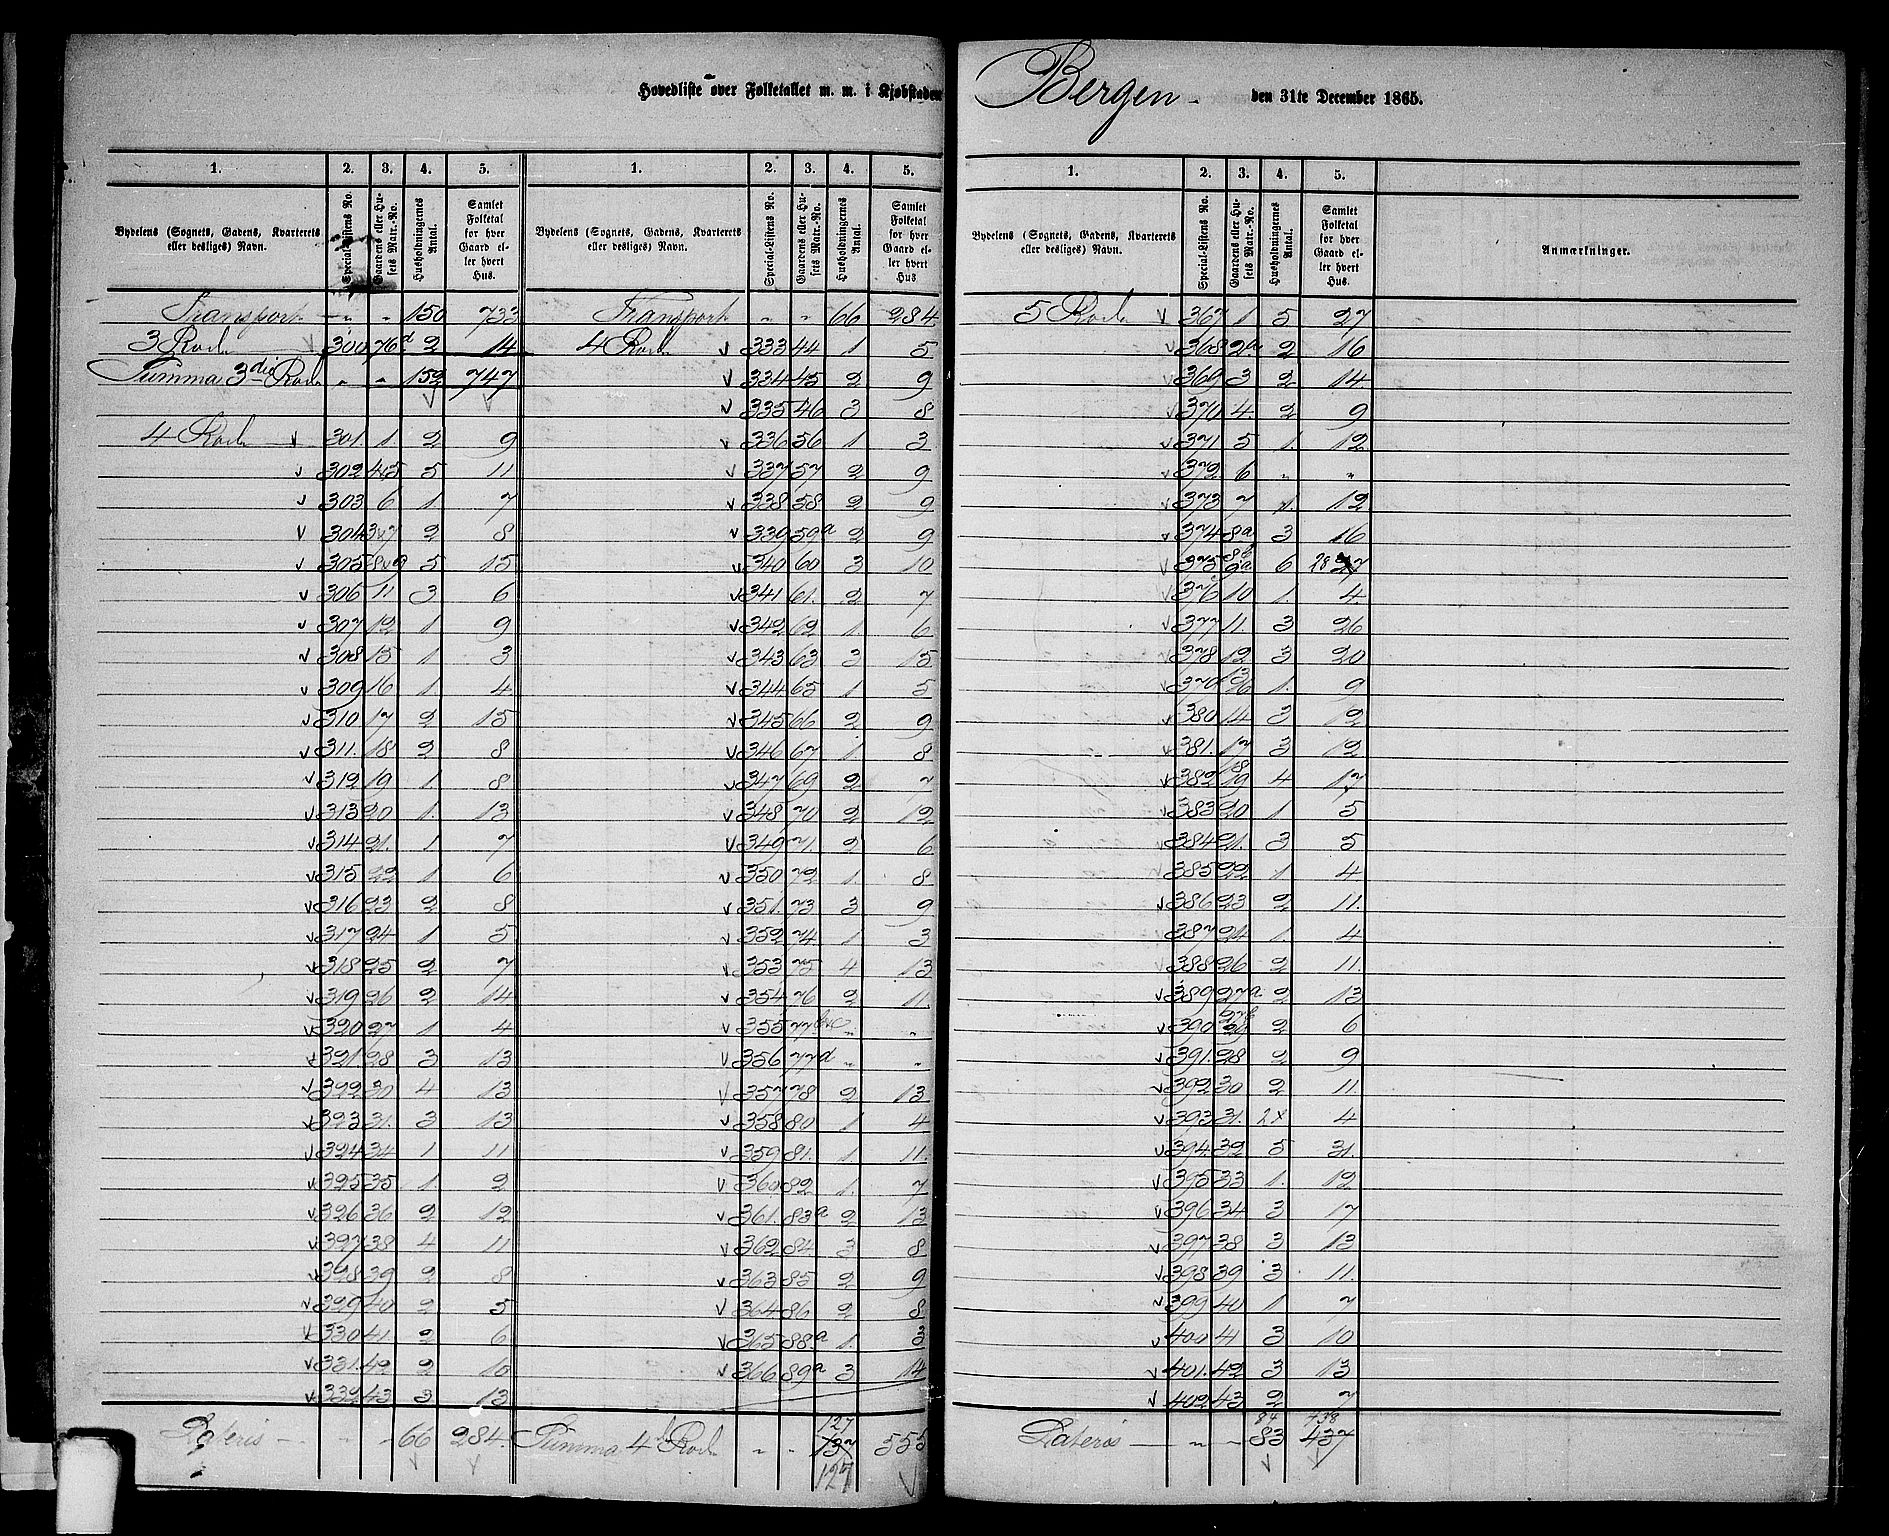 Hovedliste over Folketallet m. m. i Kjøbstaden Bergen den 31te December 1865.
1. 2. 3. 4. 5.
Bydelens (Sognets, Gadens, Kvarterets eller desliges) Navn. Special-Listens No. Gaardens eller Husets Matr.-No. Husholdningernes Antal. Samlet Folketal for hver Gaard eller hvert Hus.
Transport " " 150 733
3 Rode 300 76d 2 14
Summa 3die Rode " " 152 747
4 Rode 301. 1. 2 9
302 4&5 5 11
303 6 1 7
304 3&7 2 8
305 8&9 5 15
306 11 3 6
307 12 1 9
308 15 1 3
309 16 1. 4
310 17 2 15
311. 18 2 8
312 19 1 8
313 20 1. 13
314 21. 1 7
315 22 1 6
316 23 2 8
317 24 1 5
318 25 2 7
319 26 2 14
320 27 1 4
321 28 3 13
322 30 4 13
323 31. 3 13
324 34 1 11
325 35 1. 2
326 36 2 12
327 38 4 11
328 39 2 8
329 40 2 5
330 41 2 6
331. 42 2 10
332 43 3 13
Lateris " " 66 284.
1. 2. 3. 4. 5.
Bydelens (Sognets, Gadens, Kvarterets eller desliges) Navn. Special-Listens No. Gaardens eller Husets Matr.-No. Husholdningernes Antal. Samlet Folketal for hver Gaard eller hvert Hus
Transport " " 66 284
4 Rode 333 44 1 5
334 45 2 9
335 46 3 8
336 56 1 3
337 57 2 9
338 58 2 9
339 59a 2 9
340 60 3 10
341 61. 2 7
342 62 1. 6
343 63 3 15
344 65 1 5
345 66 2 9
346 67 1. 8
347 69 2 7
348 70 2 12
349 71. 2 6
350 72 1. 8
351. 73 3 9
352 74 1 3
353 75 4 13
354 76 2 11.
355 77b&c " "
356 77d " "
357 78 2 13
358 80 1 4
359 81. 1. 11.
360 82 1. 7
361. 83a 2 13
362 84 3 8
363 85 2 9
364 86 2 8
365 88a 1. 3
366 89a 3 14
127
Summa 4de Rode " " 137 555
127
1. 2. 3. 4. 5.
Bydelens (Sognets, Gadens, Kvarterets eller desliges) Navn. Special-Listens No. Gaardens eller Husets Matr.-No. Husholdningernes Antal. Samlet Folketal for hver Gaard eller hvert Hus. Anmærkninger.
5 Rode 367 1 5 27
368 2a 2 16
369 3 2 14
370 4. 2 9
371 5 1. 12
372 6 " "
373 7 1. 12
374 8a 3 16
375 8b 9a 6 28 27
376 10 1. 4.
377 11. 3 26
378 12 3 20
379 13 26 1. 9
380 14 3 12
381. 17 3 12
382 18 19 4 17
383 20 1 5
384 21. 3 5
385 22 1 4
386 23 2 11.
387 24 1. 4
388 26 2 11.
389 27a 2 13
390 27b 29 2 6
391. 28 2 9
392 30 2 11.
393 31. 2x 4
394 32 5 31.
395 33 1. 12
396 34 3 17
397 38 3 13
398 39 3 11.
399 40 1 7
400 41 3 10
401. 42 3 13
402 43 2 7
84 438
Lateris " " 83 437